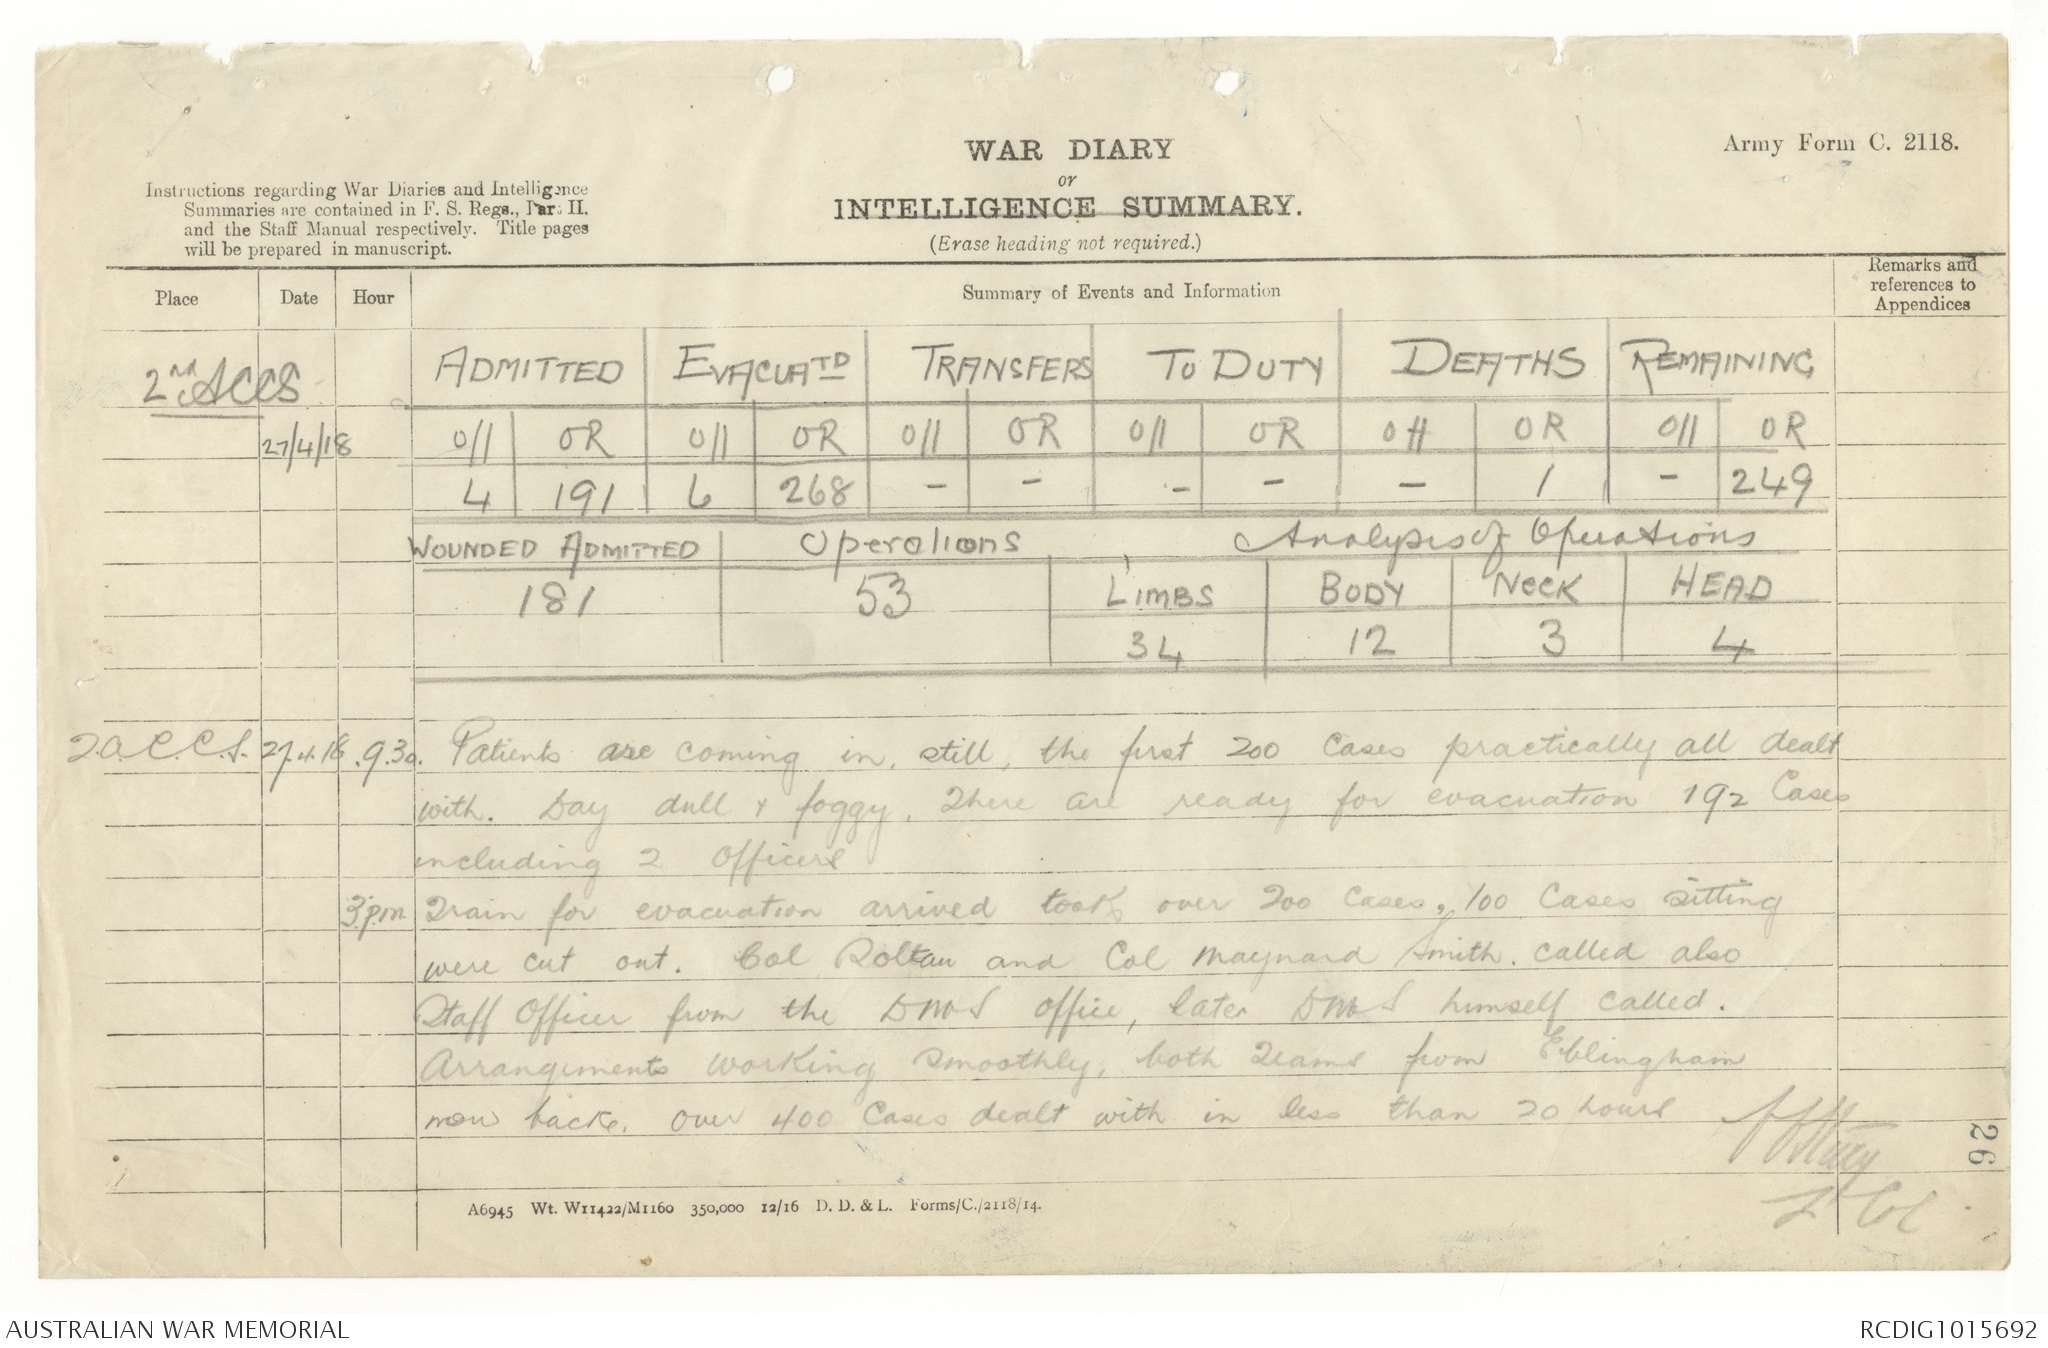 WAR DIARY
or
INTELLIGENCE SUMMARY.
(Erase heading not required.)
Army Form C. 2118.
Instructions regarding War Diaries and Intelligence
Summaries are contained in F. S. Regs., Part II.
and the Staff Manual respectively. Title pages
will be prepared in manuscript.
Place Date Hour Summary of Events and Information Remarks and
references to
Appendices
2nd ACCS
27/4/18
ADMITTED EVACUATD TRANSFERS TO DUTY DEATHS REMAINING
O// OR O// OR O// OR O// OR OH OR O// OR
4 191 6 268 - - - - - 1 - 249
WOUNDED ADMITTED Operations Analysis of Operations
181 53 LIMBS BODY NECK HEAD
34 12 3 4
2.a.C.C.S. 27.4.18 .9.30. Patients are coming in, still, the first 200 cases practically all dealt
with. Day dull & foggy. There are ready for evacuation 192 Cases
including 2 Officers
3.p.m Train for evacuation arrived took over 200 Cases, 100 Cases sitting
were cut out. Col and Col Maynard Smith. called also
Staff Officer from the DMS office, later DMS himself called.
Arrangements working smoothly, both Teams from Eblingham
now back. Over 400 Cases dealt with in less than 20 hours
Lt Col
26
A6945 Wt. W11422/M1160 350,000 12/16 D. D. & L. Forms/C./2118/14.
AUSTRALIAN WAR MEMORIAL
RCDIG1015692